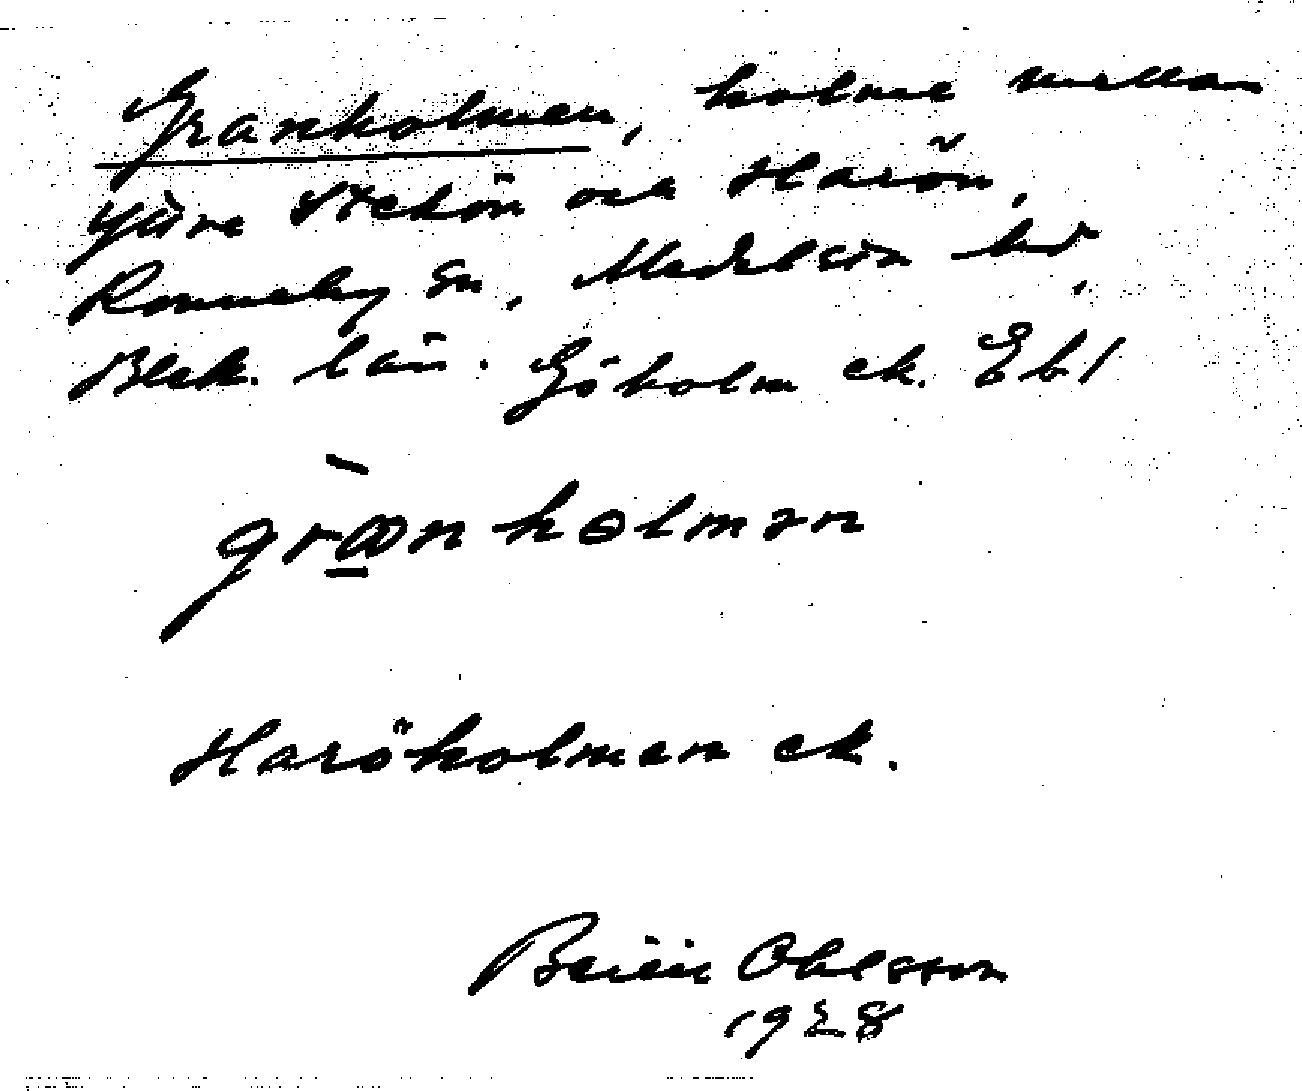 Granholmen, holme mellan
yttre Stekön och Harön,
Ronneby sn, Medelsta hd,
Blek. län. Göholm ek. Eb1
granholmən
Haröholmen ek.
Ohlsson
1928